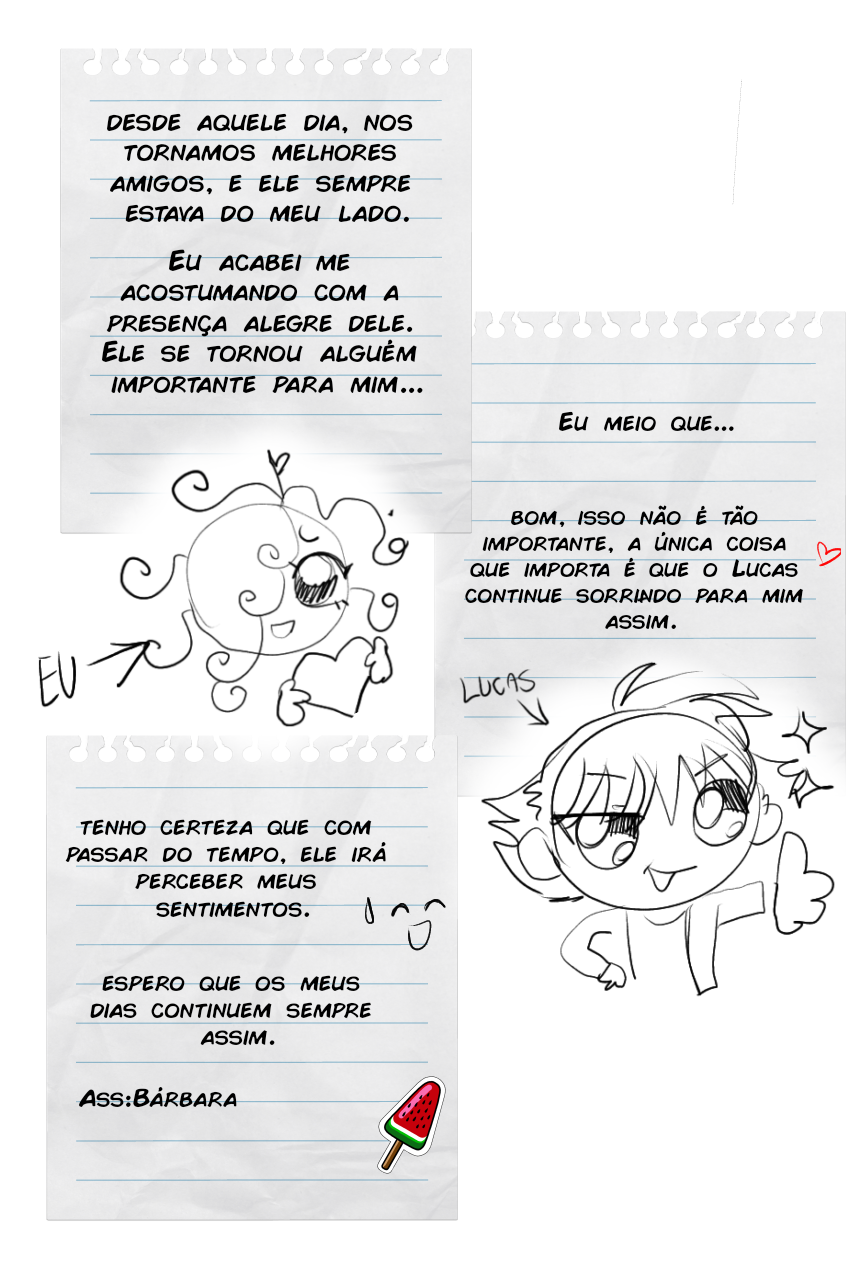 DESDE AQUELE DIA, NOS
TORNAMOS MELHORES
AMIGOS, E ELE SEMPRE
ESTAVA DO MEU LADO.
EU ACABEI ME
ACOSTUMANDO COM A
PRESENÇA ALEGRE DELE.
ELE SE TORNOU ALGUÉM
IMPORTANTE PARA MIM...
EU
EU MEIO QUE...
BOM, ISSO NÃO É TÃO
IMPORTANTE, A ÚNICA COISA
QUE IMPORTA É QUE O LUCAS
CONTINUE SORRINDO PARA MIM
ASSIM.
LUCAS
TENHO CERTEZA QUE COM
PASSAR DO TEMPO, ELE IRÁ
PERCEBER MEUS
SENTIMENTOS.
ESPERO QUE OS MEUS
DIAS CONTINUEM SEMPRE
ASSIM.
ASS:BÁRBARA